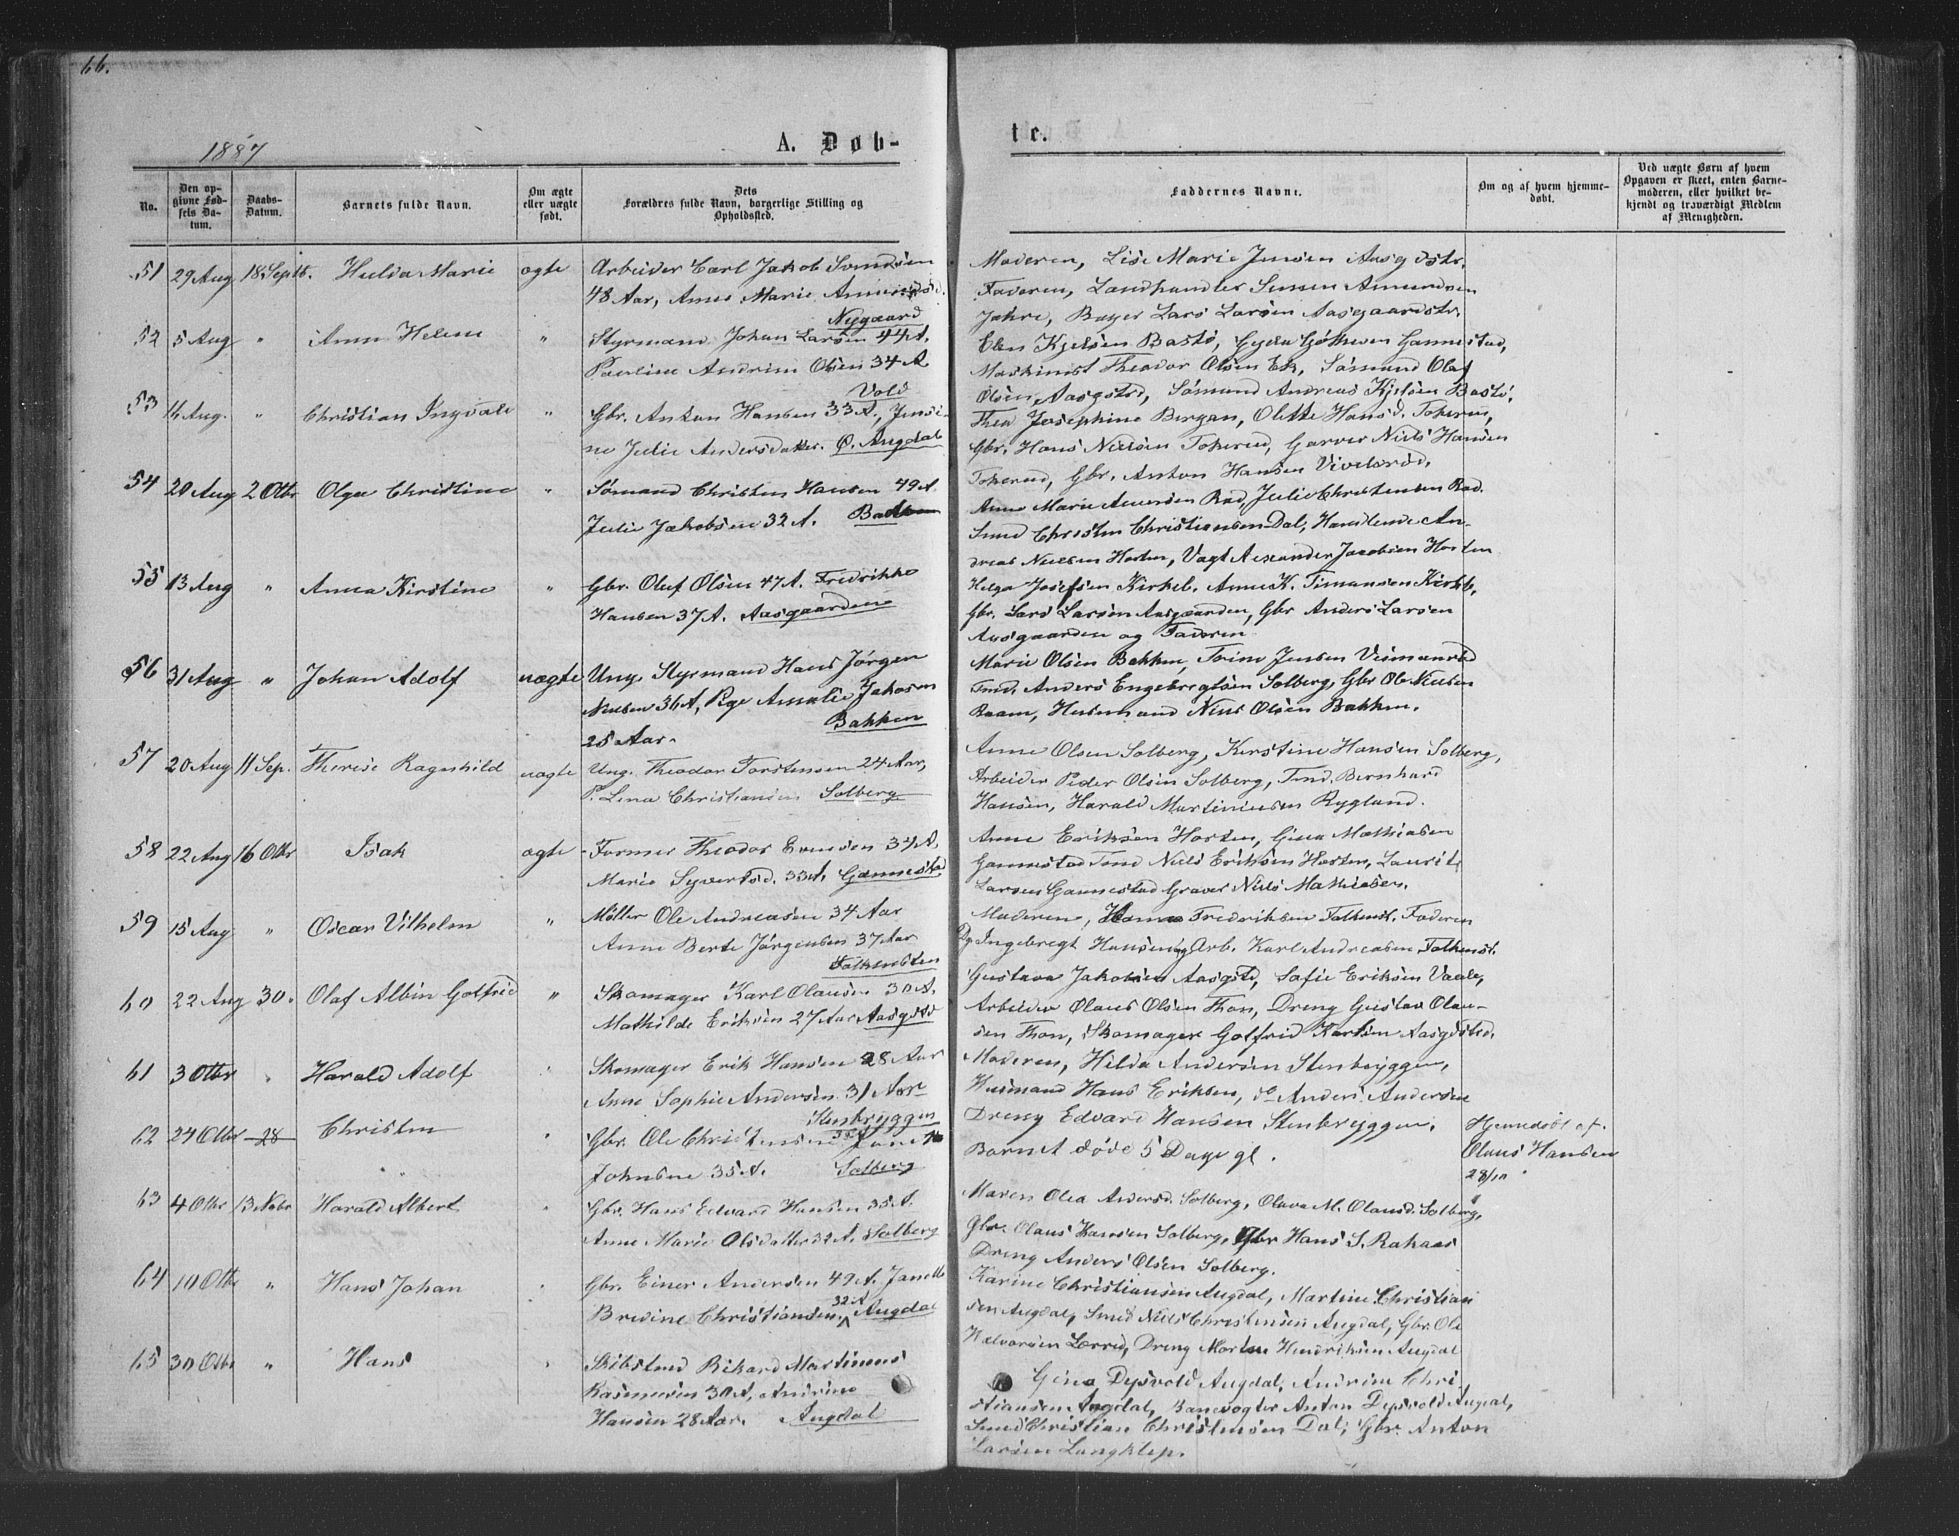 66.
1887
A. Døb-
te.
No.
Den op-
givne Fød-
sels Da-
tum.
Daabs-
Datum.
Barnets fulde Navn.
Om ægte
eller uægte
født.
Dets
Forældres fulde Navn, borgerlige Stilling og
Opholdssted.
Faddernes Navne.
Om og af hvem hjemme-
døbt.
Ved uægte Børn af hvem
Opgaven er skeet, enten Barne-
moderen, eller hvilket be-
kjendt og troværdigt Medlem
af Menigheden.
51 29 Aug 18 Septb. Hulda Marie ægte Arbeider Carl Jakob Svendsen
48 Aar, Anne Marie
Nygaard
Moderen, Lise Marie Jensen Aasgdstr.
Faderen, Landhandler Amundsen
Jahre, Bager Lars Larsen Aasgaardstr.
52 5 Aug " Anna Helene " Styrmand Johan Larsen 44 A,
Pauline Andrine Olsen 34 A
Vold
Elen Kjelsen Bastø, Gyda Gannestad,
Maskinist Theodor Olsen Ek, Sømand Olaf
Olsen, Aasgstrd, Sømand Andreas Kjelsen Bastø,
53 16 Aug. " Christian Ingvald " Gbr. Anton Hansen 33 A, Jensi-
ne Julie Andersdatter. Ø. Augdal
Thea Josephine Bergan, Olette Hansd. Tokerud,
Gbr. Hans Nielsen Tokerud, Garver Niels Hansen
Tokerud, Gbr. Anton Hansen
54 20 Aug 2 Otbr Olga Christine " Sømand Christen Hansen 49 A.
Julie Jakobsen 32 A. Bakken
Anne Marie Rød, Julie Christensen Rød.
Smed Christen Christiansen Dal, Handlende An-
dreas Nielsen Horten, Vagt Alexander Jacobsen Horten
55 13 Aug " Anna Kirstine " Gbr. Oluf Olsen 47 A. Fredrikke
Hansen 37 A. Aasgaarden
Helga Josefsen Kirkeb. Anne K. Timansen Kirkb,
Gbr. Lars Larsen Aasgaarden, Gbr Anders Larsen
Aasgaarden og Faderen
56 31 Aug " Johan Adolf uægte Ung. Styrmand Hans Jørgen
Nielsen 36 A, Pige Amalie Jakobsen
28 Aar. Bakken
Marie Olsen Bakken, Trine Jensen
Tmd. Anders Engebregtsen Solberg, Gbr Ole Nielsen
Raam, Husmand Niels Olsen Bakken.
57 20 Aug 11 Sep. Therese Ragnhild uægte Ung. Theodor Torstensen 24 Aar,
P. Lina Christiansen Solberg
Anne Olsen Solberg, Kirstine Hansen Solberg,
Arbeider Peder Olsen Solberg, Tmd. Bernhard
Hansen, Harald Martiniusen Rygland.
58 22 Aug 16 Otbr Isak ægte Former Theodor Evensen 34 A,
Marie Syvertsd. 33 A, Gannestad
Anne Eriksen Horten, Gina Mathisen
Gannestad Tmd Niels Eriksen Horten, Laurits
Larsen Gannestad Graver Niels Mathisen.
59 15 Aug " Oscar Vilhelm " Møller Ole Andreasen 34 Aar
Anne Berte Jørgensen 37 Aar
Falkensten
Moderen, Fredriksen Falkenst. Faderen
Ingebregt Hansen, Arb. Karl Andreasen Falkenst.
60 22 Aug 30. Olaf Albin Gotfrid " Skomager Karl Olausen 30 A.
Mathilde Eriksen 27 Aar Aasgstr
Gustava Jakobsen Aasgstd, Sofie Eriksen Vaale,
Arbeider Olaus Olsen Thon, Dreng Gustav Olau-
sen Thon, Skomager Gotfrid Karlsen Aasgdstrd.
61 3 Otbr " Harald Adolf " Skomager Erik Hansen 28 Aar
Anne Sophie Andersen 31 Aar
Stenbryggen
Moderen, Hilda Andersen Stenbryggen,
Husmand Hans Eriksen, do Anders Andersen
Dreng Edvard Hansen Stenbryggen.
62 24 Otbr - 28 Christen " Gbr. Ole Christensen 35
Johnsen 35 A. Solberg
Barnet døde 5 Dage gl.
Hjemedøbt af
Olaus Hansen
28/10
63 4 Otbr 13 Novbr Harald Albert " Gbr. Hans Edvard Hansen 35 A.
Anne Marie Olsdatter 32 A, Solberg
Maren Olea Andersd. Solberg, Olava M. Olausd. Solberg,
Gbr. Olaus Hansen Solberg, Gbr Hans S. Rahaas
Dreng Anders Olsen Solberg.
64 10 Otb " Hans Johan " Gbr. Einer Andersen 49 A. Janette
Bredine Christiansen, 32 A Augdal
Karine Christiansen Augdal, Martine Christian
sen Augdal, Smed Niels Christensen Augdal, Gbr. Ole
Halvorsen Dreng Morten Hendriksen Augdal
65 30 Otbr " Hans " Skibstmd Rikard Martinius
Rasmussen 30 A, Andrine
Hansen 28 Aar. Augdal
Gina Dysvold Augdal, Andrine Chri
stiansen Augdal, Banevogter Anton Dysvold Augdal,
Smed Christian Christensen Dal, Gbr. Anton
Larsen Langklep.